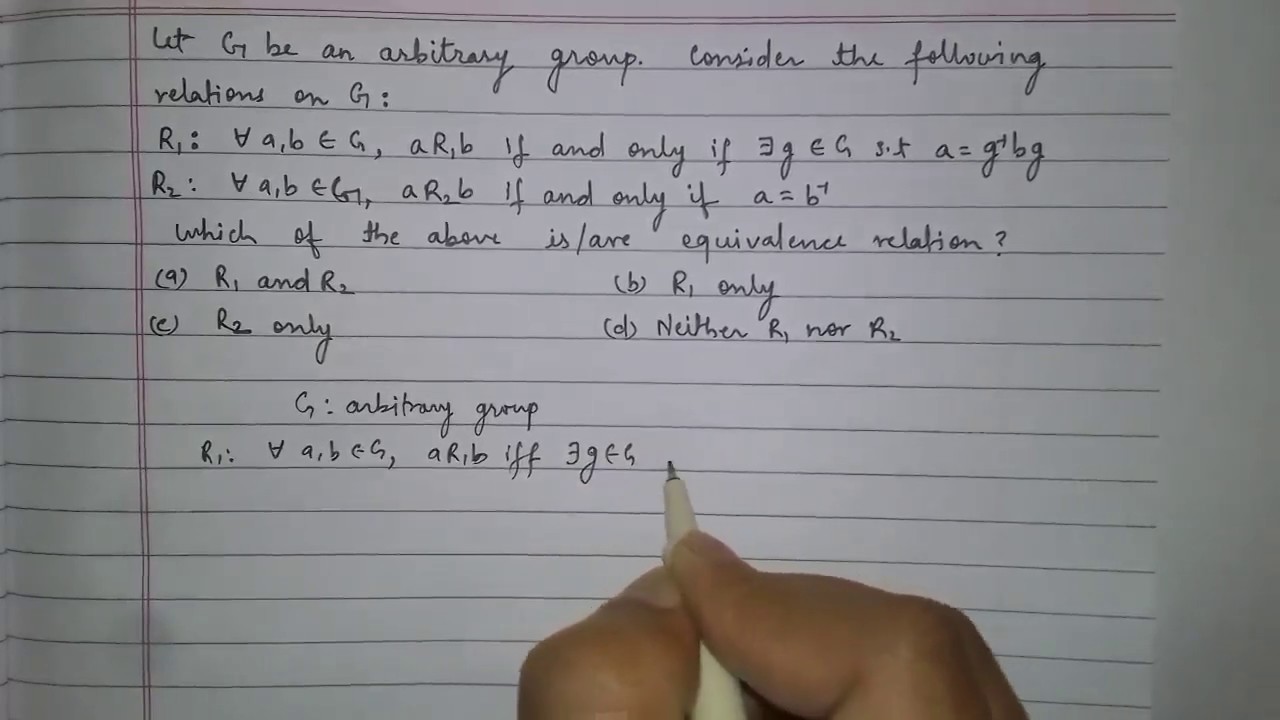 Let G be an arbitrary group. Consider the following
relations on G:
R₁: ∀ a,b ∈ G, aR₁b if and only if ∃g ∈ G s.t a = g⁻¹bg
R₂: ∀ a,b ∈ G, aR₂b if and only if a = b⁻¹
which of the above is/are equivalence relation?
(a) R₁ and R₂ (b) R₁ only
(c) R₂ only (d) Neither R₁ nor R₂
G: arbitrary group
R₁: ∀ a,b ∈ G, aR₁b iff ∃g∈G